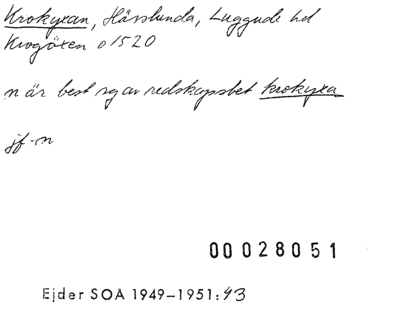 Krokyxan, Härslunda, Luggude hd
Krogöxen o 1520
n är best sg av redskapsbet krokyxa
jf -n
00028051
Ejder SOA 1949–1951:43